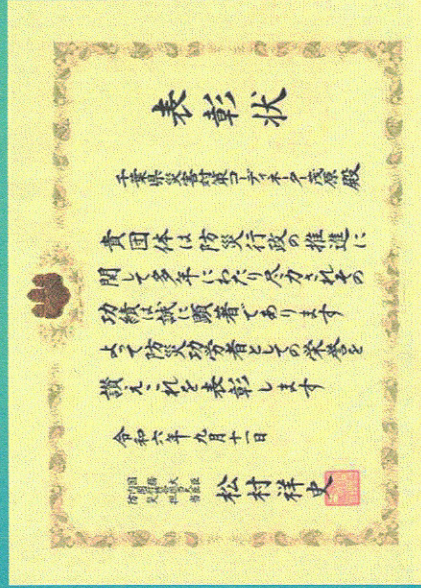 表彰状
千葉県災害対策コーディネーター茂原殿
貴団体は防災行政の推進に
関して多年にわたり尽力されその
功績は誠に顕著であります
よって防災功労者としての栄誉を
讃えこれを表彰します
令和六年九月十一日
松村祥史